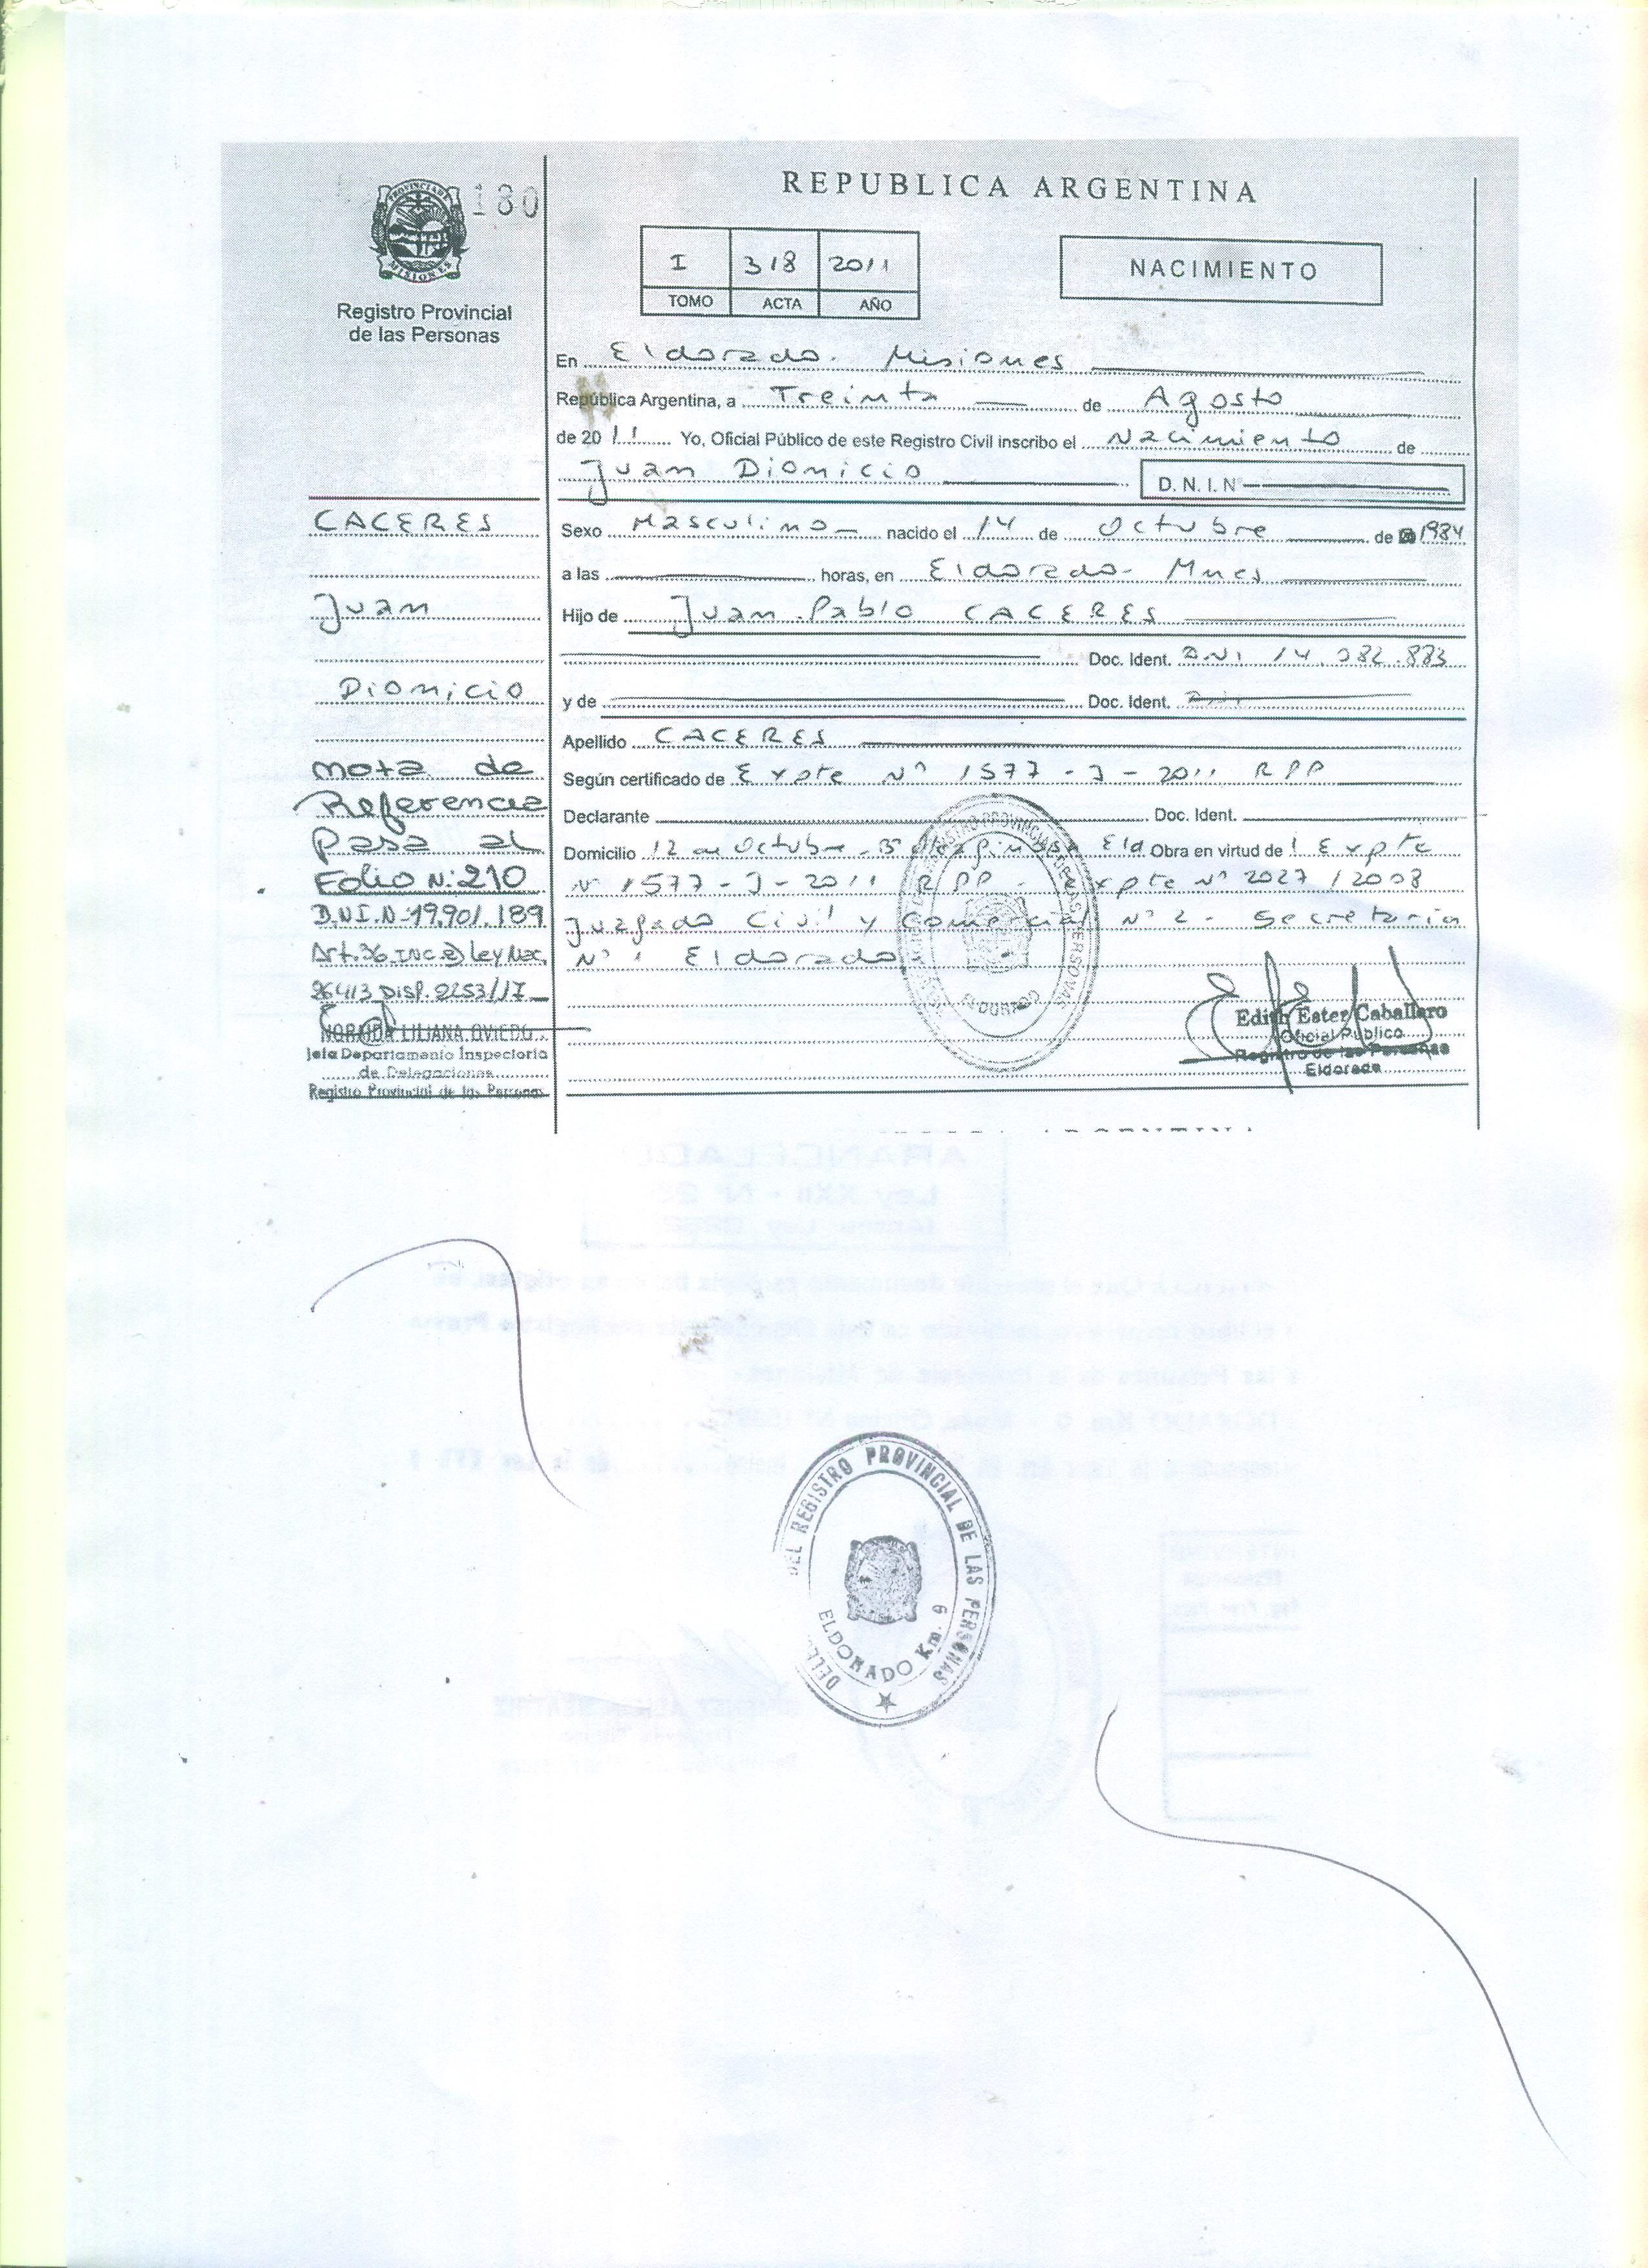 REPUBLICA ARGENTINA
PROVINCIA DE MISIONES
180
Registro Provincial
de las Personas
I 318 2011
TOMO ACTA AÑO
NACIMIENTO
En Eldorado. Misiones
República Argentina, a Treinta de Agosto
de 2011 Yo, Oficial Público de este Registro Civil inscribo el Nacimiento de
Juan Dionicio D. N. I. Nº
Sexo Masculino nacido el 14 de Octubre de 1984
a las horas, en Eldorado - Mnes
Hijo de Juan Pablo CACERES
Doc. Ident. DNI 14.082.883
y de Doc. Ident.
Apellido CACERES
Según certificado de Expte Nº 1577 - J - 2011 RPP
Declarante Doc. Ident.
Domicilio 12 de Octubre - Bº Eld Obra en virtud de Expte
Nº 1577 - J - 2011 RPP - Expte Nº 2027 / 2008
Juzgado Civil y Comercial Nº 2 - Secretaria
Nº 1 Eldorado
Edith Ester Caballero
Oficial Público
Registro de las Personas
Eldorado
CACERES
Juan
Dionicio
nota de
Referencia
Pasa al
Folio N: 210
D.N.I. N: 19.901.189
Art. 36 INC. Ley Nac.
26413 Disp. 2253/17
NORMA LILIANA OVIEDO
Jefa Departamento Inspectoria
de Delegaciones
Registro Provincial de las Personas
REGISTRO PROVINCIAL DE LAS PERSONAS
ELDORADO
DEL REGISTRO PROVINCIAL DE LAS PERSONAS
ELDORADO Km. 9